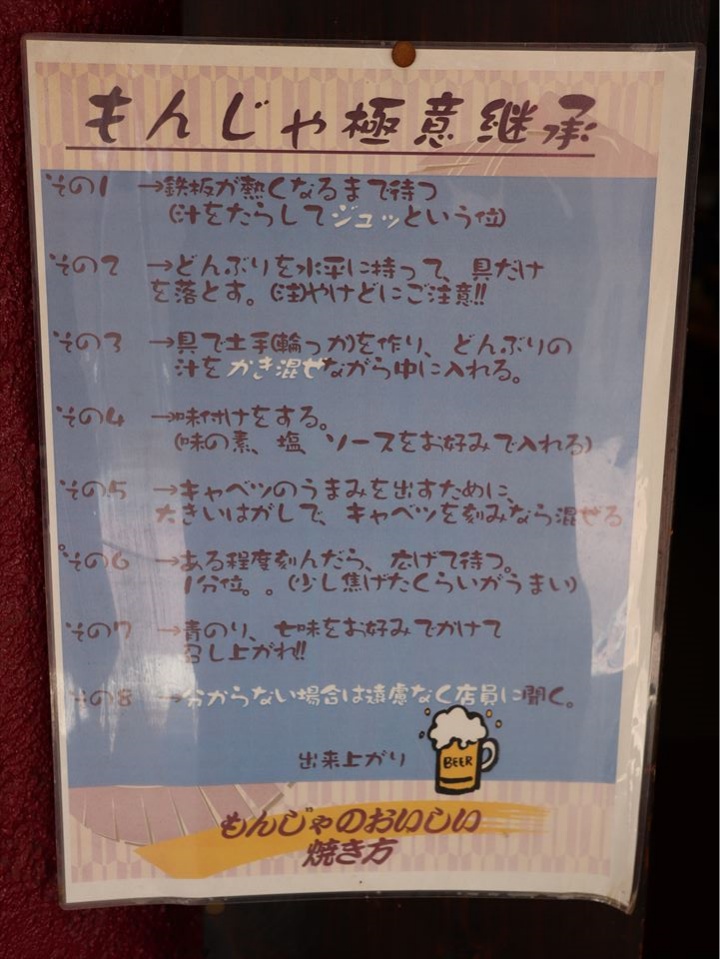 もんじゃ極意継承
その1 →鉄板が熱くなるまで待つ
(汁をたらしてジュッという位)
その2 →どんぶりを水平に持って、具だけ
を落とす。(注)やけどにご注意!!
その3 →具で土手(輪っか)を作り、どんぶりの
汁をかき混ぜながら中に入れる。
その4 →味付けをする。
(味の素、塩、ソースをお好みで入れる)
その5 →キャベツのうまみを出すために、
大きいはがしで、キャベツを刻みなら混ぜる
その6 →ある程度刻んだら、広げて待つ。
1分位。。(少し焦げたくらいがうまい)
その7 →青のり、七味をお好みでかけて
召し上がれ!!
その8 →分からない場合は遠慮なく店員に聞く。
出来上がり
BEER
もんじゃのおいしい
焼き方